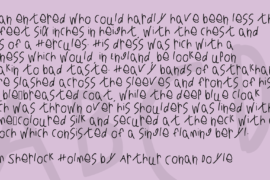 an entered who could hardly have been less th
feet six inches in height, with the chest and
s of a Hercules. His dress was rich with a
ness which would, in England, be looked upon
akin to bad taste. Heavy bands of astrakhan
re slashed across the sleeves and fronts of his
ble-breasted coat, while the deep blue cloak
ch was thrown over his shoulders was lined with
me-coloured silk and secured at the neck with
och which consisted of a single flaming beryl.
m Sherlock Holmes by Arthur Conan Doyle